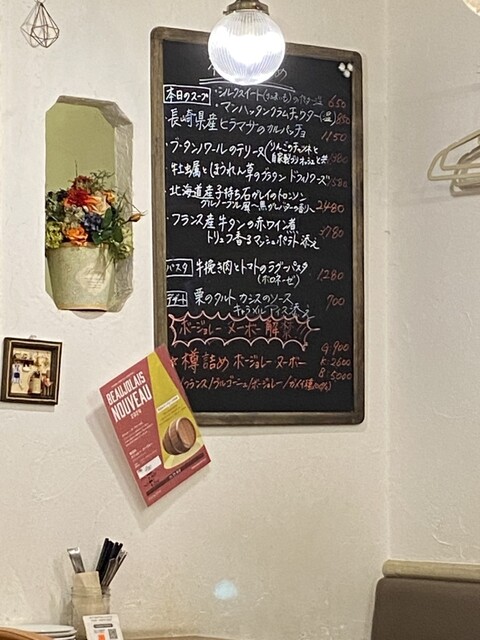 本日のスープ
・シルクスイート
650
・マンハッタンクラムチャウダー(温) 850
・長崎県産ヒラマサのカルパッチョ
1150
・ブータンノワールのテリーヌ(りんごのチャツネと
自家製ブリオッシュと共に
・牡蠣とほうれん草のグラタン ドフィノワーズ 1580
・北海道産子持ち石ガレイのトロンソン
2480
・フランス産牛タンの赤ワイン煮
トリュフ香るマッシュポテト添え
3780
パスタ 牛挽き肉とトマトのラグーパスタ 1,280
(ボロネーゼ)
デザート 栗のタルト カシスのソース
キャラメルアイス添え
700
ボージョレーヌーボー解禁!!
☆樽詰めボージョレーヌーボー
G.900
K.2600
B.5000
(フランス/ブルゴーニュ/ボージョレー/ガメイ種100%)
BEAUJOLAIS
NOUVEAU